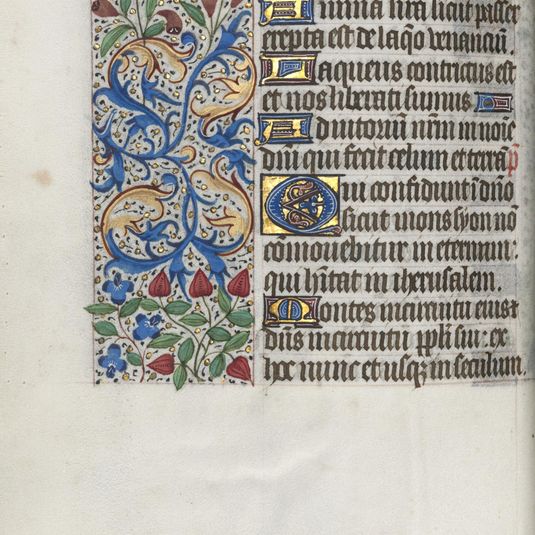 Anima nr̄a sicut passer
erepta est de laq̄o venanciū.
Laqueus contritus est
et nos liberati sumus.
Adiutoriū nr̄m in noīe
dn̄i qui fecit celum et terrā p̄
Qui confidunt ī dn̄o
sicut mons syon nō
cōmovebitur in eternum:
qui h̄itat in iherusalem.
Montes in circuitu eius ⁊
dn̄s in circuitu ppl̄i sui: ex
hoc nunc et usqȝ in seculum.